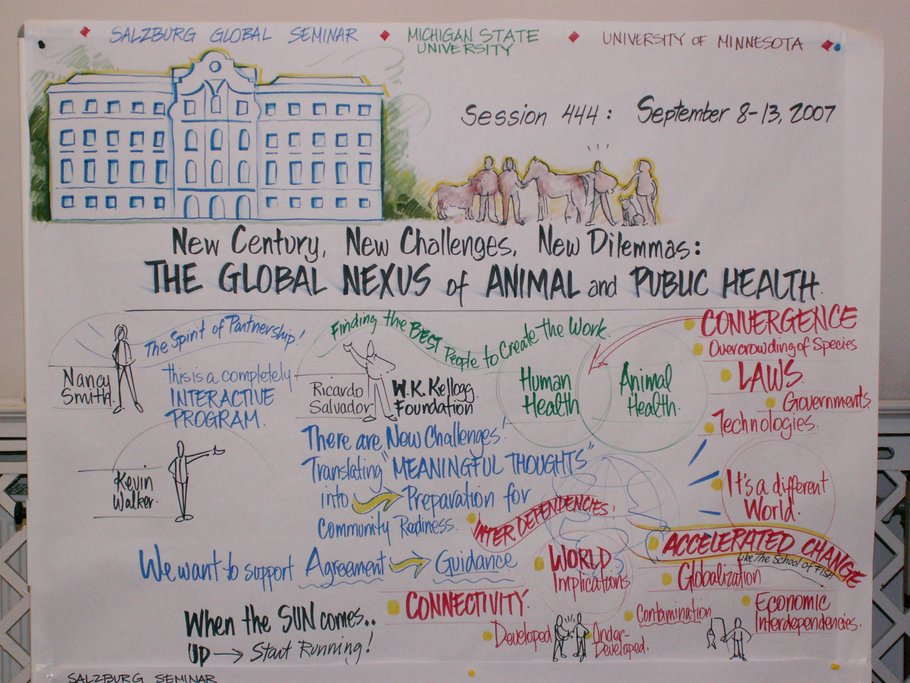 SALZBURG GLOBAL SEMINAR
MICHIGAN STATE
UNIVERSITY
UNIVERSITY OF MINNESOTA
Session 444: September 8-13, 2007
New Century, New Challenges, New Dilemmas:
THE GLOBAL NEXUS of ANIMAL and PUBLIC HEALTH
Nancy
Smith
The Spirit of Partnership!
This is a completely
INTERACTIVE
PROGRAM.
Kevin
Walker
Finding the BEST People to Create the Work.
Ricardo
Salvador
W.K. Kellogg
Foundation
Human
Health
Animal
Health
CONVERGENCE
Overcrowding of Species
LAWS
Governments
Technologies
There are New Challenges!
Translating "MEANINGFUL THOUGHTS"
into Preparation for
Community Readiness.
INTER DEPENDENCIES!
It's a different
World.
ACCELERATED CHANGE
Like The School of FISH
We want to support Agreement Guidance
WORLD
Implications
Globalization
CONNECTIVITY
Contamination
Economic
Interdependencies.
Developed
Under-
Developed.
When the SUN comes..
UP → Start Running!
SALZBURG SEMINAR